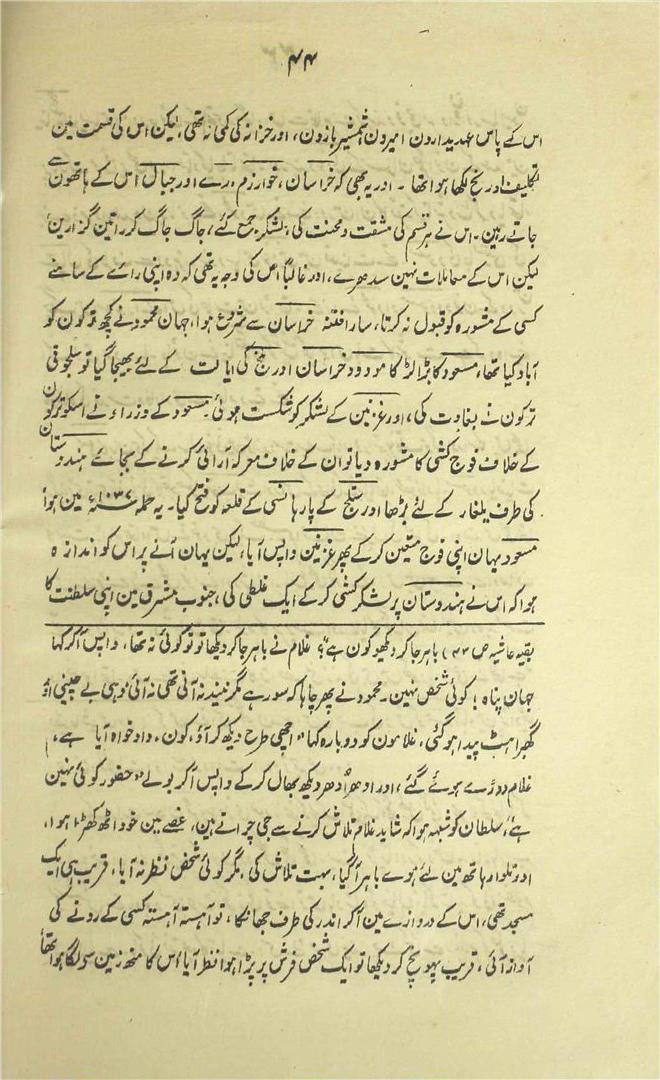 ۴۴
اس کے پاس عہدیدارون امیرون شمشیر بازون، اور خزانہ کی کمی نہ تھی، لیکن اس کی قسمت مین
تکلیف اور رنج لکھا ہوا تھا ۔ اور یہ بھی کہ خراسان، خوارزم، رے اور جبال اس کے ہاتھون سے
جاتے رہین۔ اس نے ہر قسم کی مشقت و محنت کی، لشکر جمع کئے، جاگ جاگ کر راتین گزارین
لیکن اس کے معاملات نہین سدھرے، اور غالباً اس کی وجہ یہ تھی کہ وہ اپنی رائے کے سامنے
کسی کے مشورہ کو قبول نہ کرتا، سارا فتنہ خراسان سے شروع ہوا، جہان محمود نے کچھ ترکون کو
آباد کیا تھا، مسعود کا بڑا لڑکا مودود خراسان اور بلخ کی ایالت کے لئے بھیجا گیا تو سلجوقی
ترکون نے بغاوت کی، اور غزنین کے لشکر کو شکست ہوئی۔ مسعود کے وزراء نے اسکو ترکون
کے خلاف فوج کشی کا مشورہ دیا تو ان کے خلاف معرکہ آرائی کرنے کے بجائے ہندوستان
کی طرف یلغار کے لئے بڑھا اور ستلج کے پار ہانسی کے قلعہ کو فتح کیا۔ یہ حملہ ۱۰۳۷ء مین ہوا
مسعود یہان اپنی فوج متعین کرکے پھر غزنین واپس آیا، لیکن یہان آنے پر اس کو اندازہ
ہوا کہ اس نے ہندوستان پر لشکر کشی کرکے ایک غلطی کی، جنوب مشرق مین اپنی سلطنت کا
بقیہ حاشیہ ص ۴۳) باہر جا کر دیکھو کون ہے"؟ غلام نے باہر جا کر دیکھا تو تو کوئی نہ تھا، واپس آکر کہا
جہان پناہ! کوئی شخص نہین۔ محمود نے پھر چاہا کہ سو رہے مگر نیند نہ آنی تھی نہ آئی، وہی بے چینی اور
گھبراہٹ پیدا ہو گئی، غلامون کو دوبارہ کہا "اچھی طرح دیکھ کر آؤ، کون، دادخواہ آیا ہے،
غلام دوڑے ہوئے گئے، اور ادھر اُدھر دیکھ بھال کرکے واپس آکر بولے "حضور کوئی نہین
ہے"، سلطان کو شبہہ ہوا کہ شاید غلام تلاش کرنے سے جی چراتے ہین، غصے مین خود اٹھ کھڑا ہوا،
اور تلوار ہاتھ مین لئے ہوے باہر آ گیا، بہت تلاش کی، مگر کوئی شخص نظر نہ آیا، قریب ہی ایک
مسجد تھی، اس کے دروازے مین آکر اندر کی طرف جھانکا، تو آہستہ آہستہ کسی کے رونے کی
آواز آئی، قریب پہونچ کر دیکھا تو ایک شخص فرش پر پڑا ہوا نظر آیا، اس کا منھ زمین سے لگا ہوا تھا